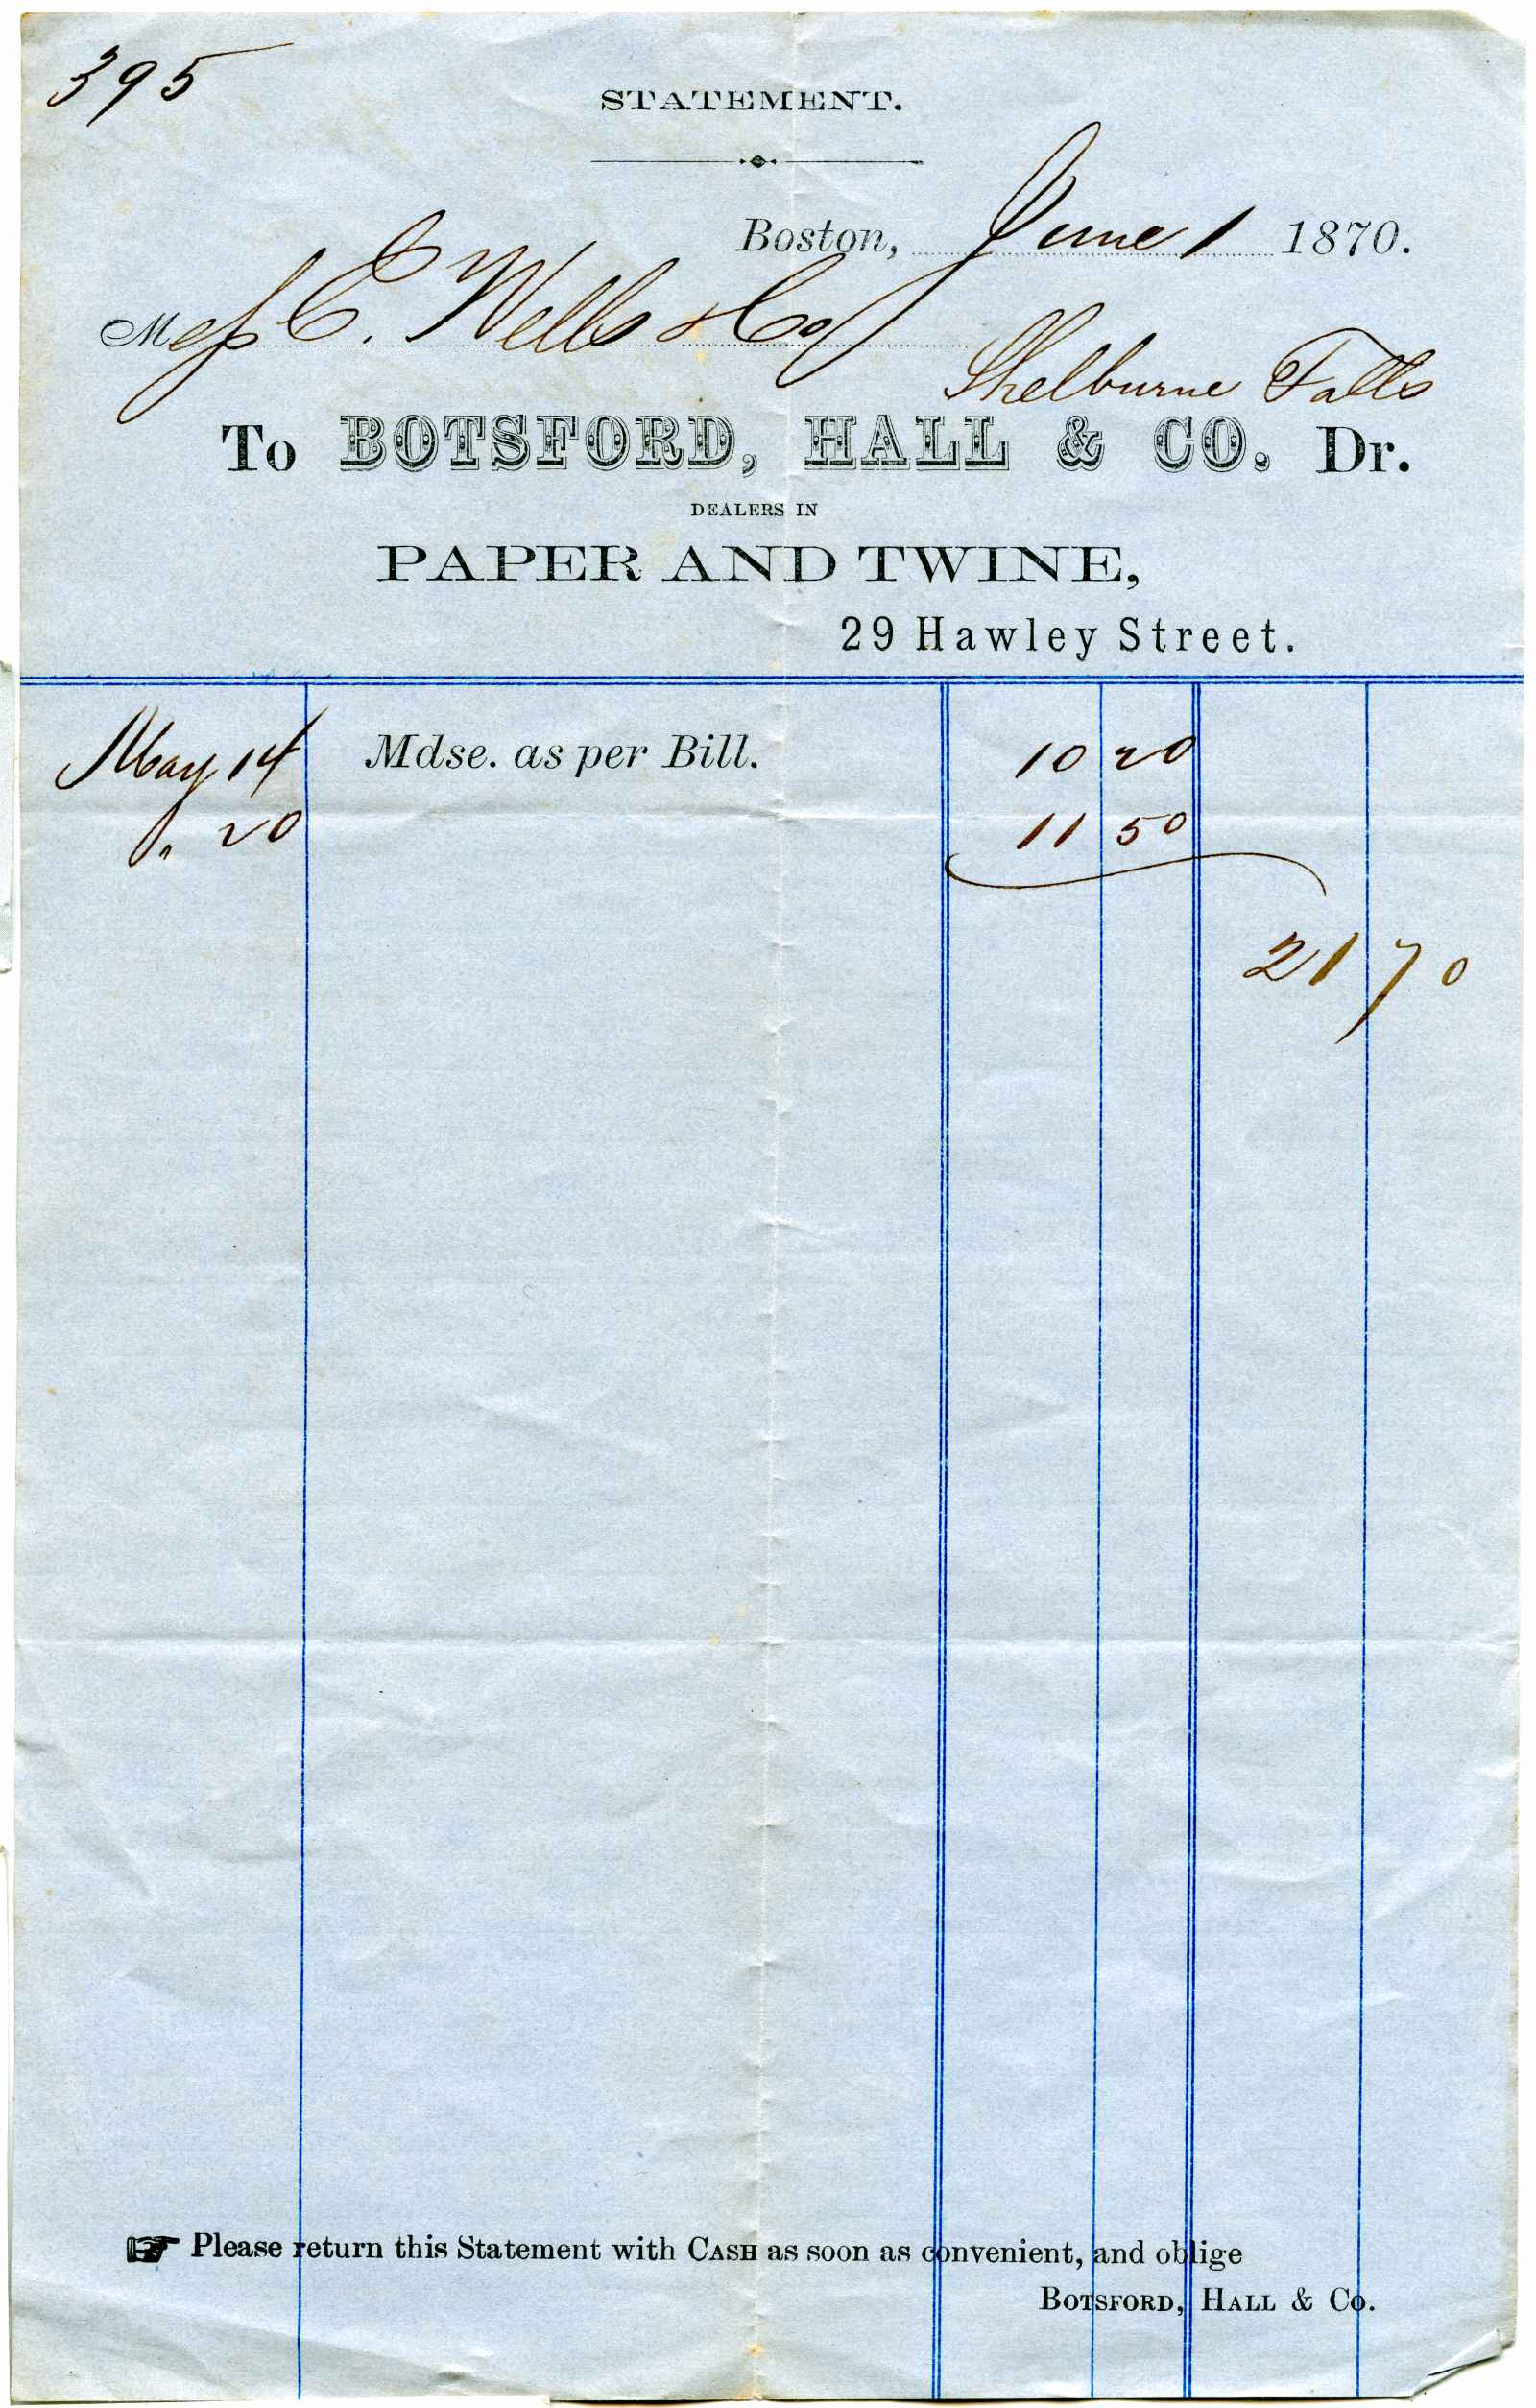 395
STATEMENT.
Boston, June 1 1870.
Mess C. Wells & Co
Shelburne Falls
To BOTSFORD, HALL & CO. Dr.
DEALERS IN
PAPER AND TWINE,
29 Hawley Street.
May 14 Mdse. as per Bill. 10 20
" 20 11 50
21 70
☞ Please return this Statement with CASH as soon as convenient, and oblige
BOTSFORD, HALL & CO.